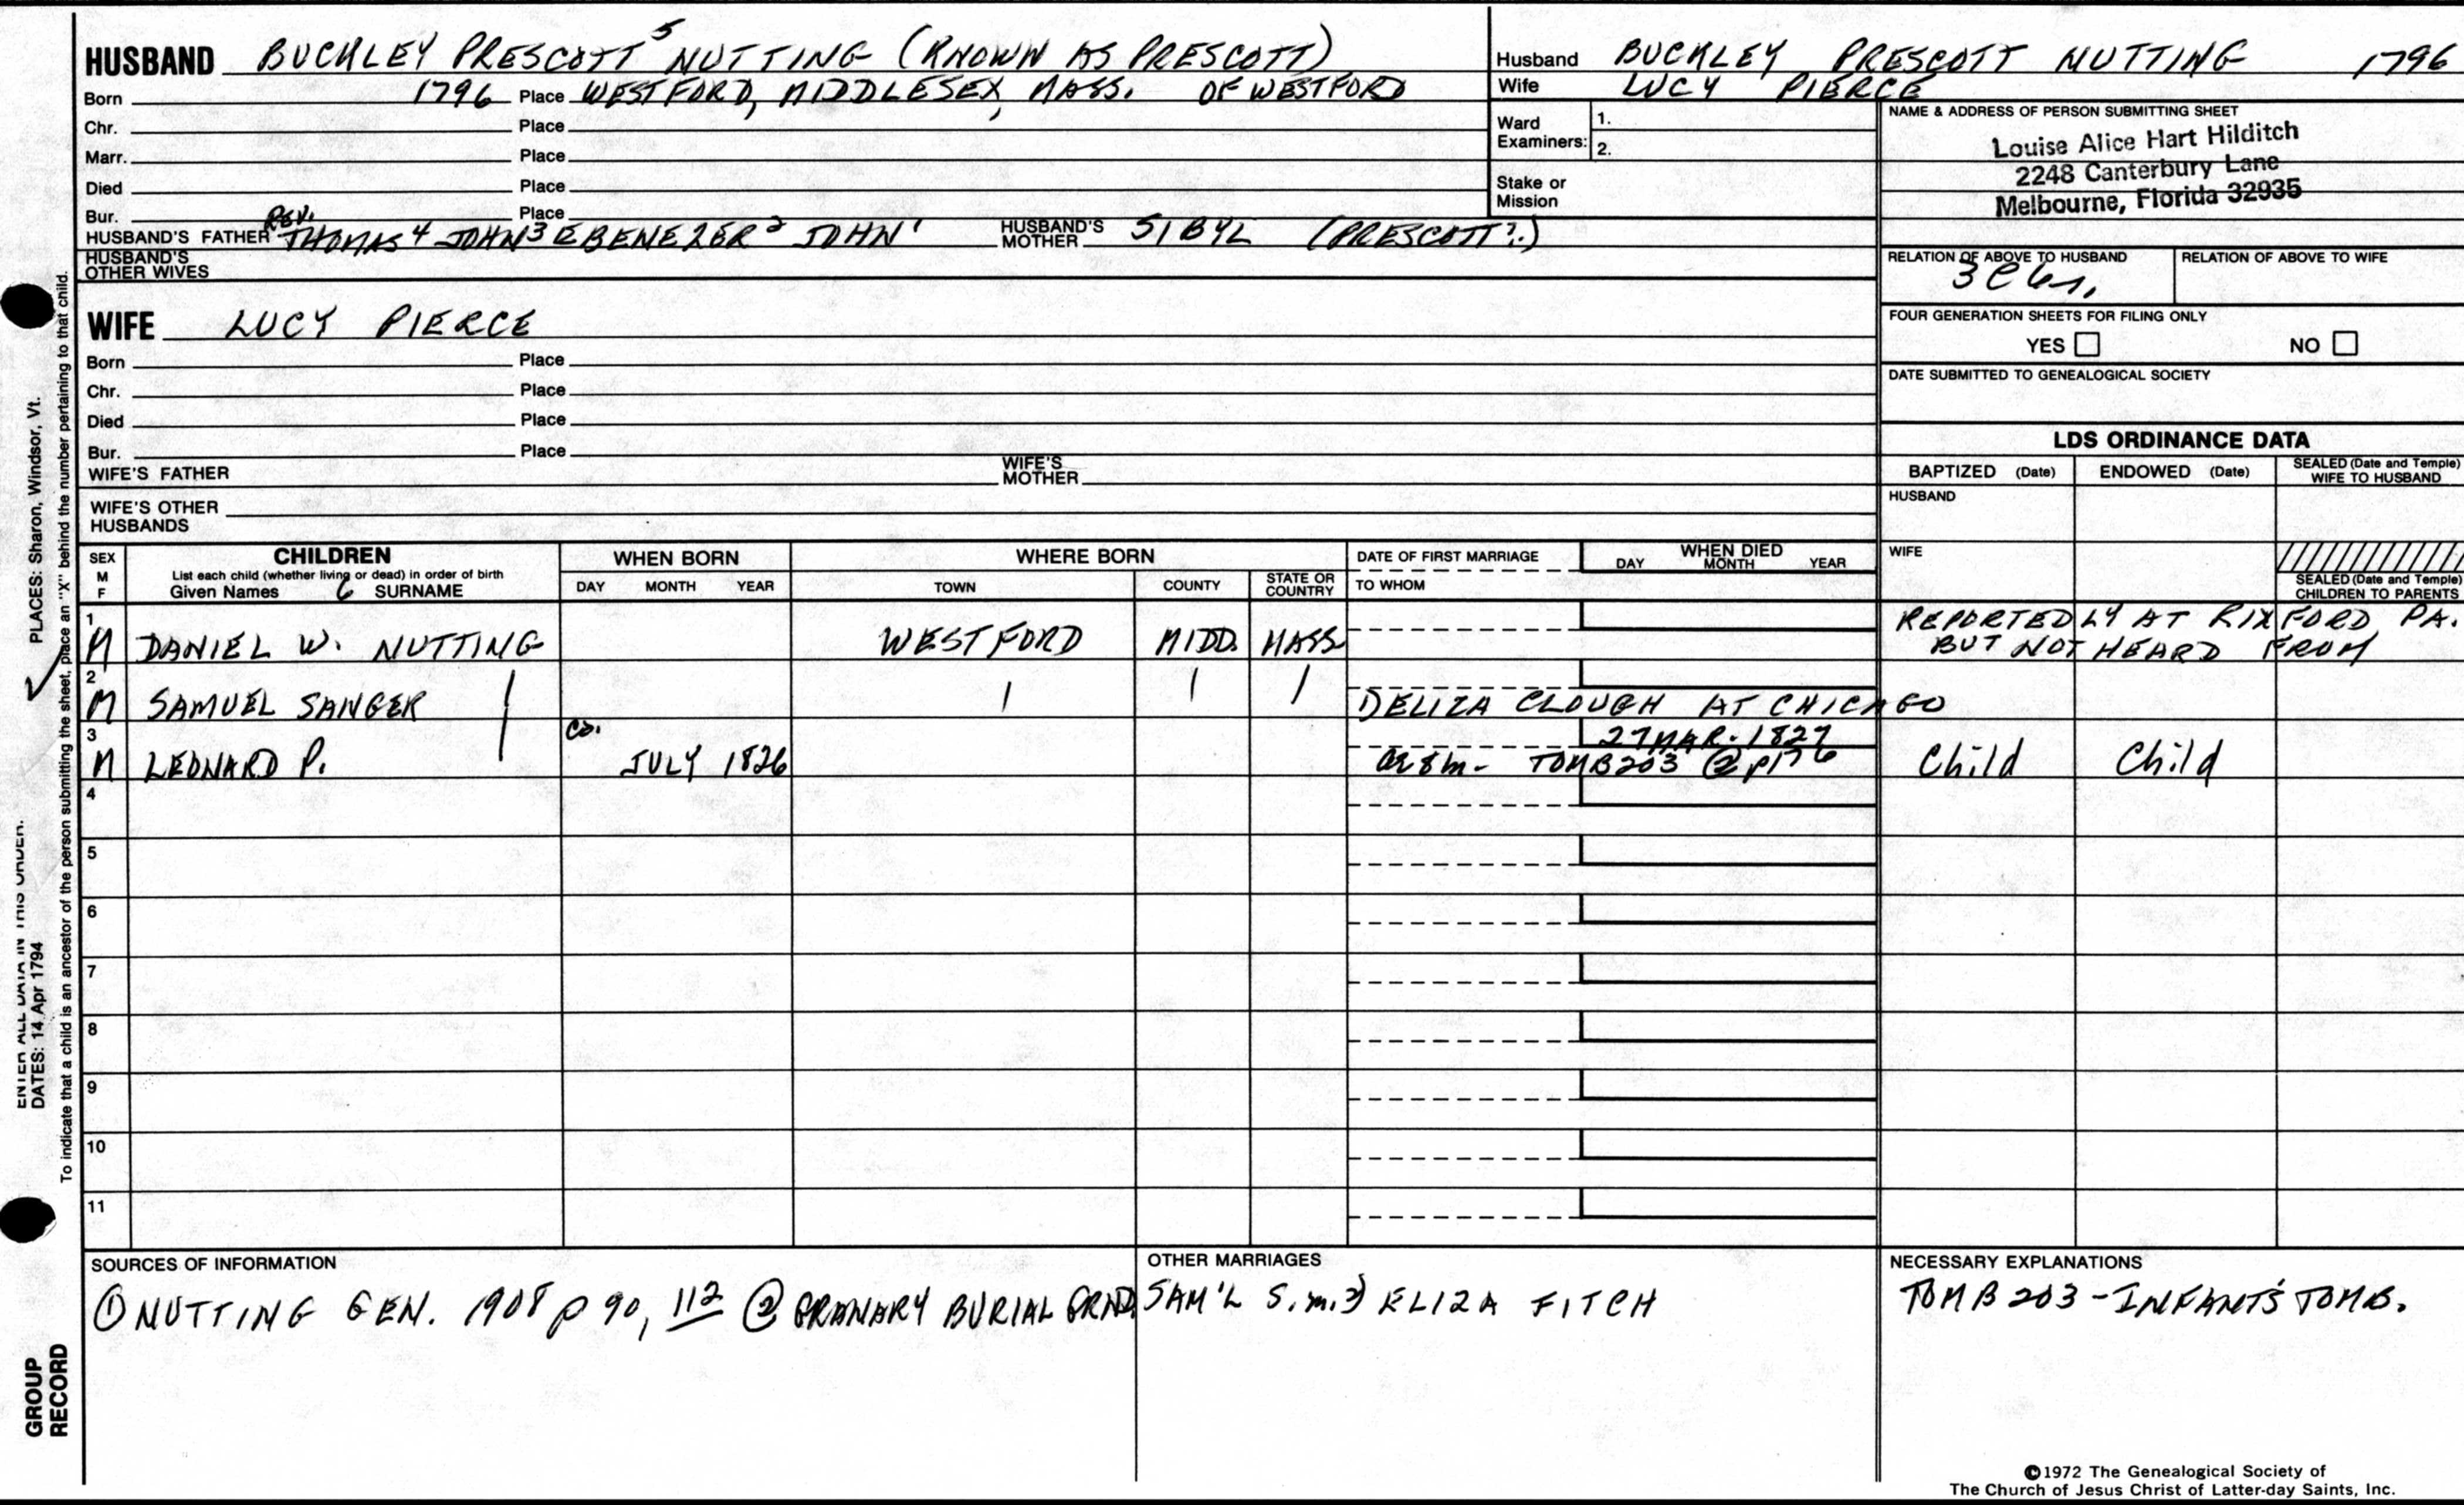 HUSBAND BUCKLEY PRESCOTT 5 NUTTING (KNOWN AS PRESCOTT)
Born 1796 Place WESTFORD, MIDDLESEX, MASS. OF WESTFORD
Chr. Place
Marr. Place
Died Place
Bur. Place
HUSBAND'S FATHER REV. THOMAS 4 JOHN 3 EBENEZER 2 JOHN 1 HUSBAND'S MOTHER SIBYL (PRESCOTT?)
HUSBAND'S OTHER WIVES
WIFE LUCY PIERCE
Born Place
Chr. Place
Died Place
Bur. Place
WIFE'S FATHER WIFE'S MOTHER
WIFE'S OTHER HUSBANDS
Husband BUCKLEY PRESCOTT NUTTING 1796
Wife LUCY PIERCE
Ward Examiners: 1.
2.
Stake or Mission
NAME & ADDRESS OF PERSON SUBMITTING SHEET
Louise Alice Hart Hilditch
2248 Canterbury Lane
Melbourne, Florida 32935
RELATION OF ABOVE TO HUSBAND RELATION OF ABOVE TO WIFE
FOUR GENERATION SHEETS FOR FILING ONLY
YES NO
DATE SUBMITTED TO GENEALOGICAL SOCIETY
LDS ORDINANCE DATA
BAPTIZED (Date) ENDOWED (Date) SEALED (Date and Temple) WIFE TO HUSBAND
HUSBAND
WIFE
SEALED (Date and Temple) CHILDREN TO PARENTS
SEX M F CHILDREN WHEN BORN WHERE BORN DATE OF FIRST MARRIAGE WHEN DIED
List each child (whether living or dead) in order of birth
Given Names SURNAME DAY MONTH YEAR TOWN COUNTY STATE OR COUNTRY TO WHOM DAY MONTH YEAR
1 M DANIEL W. NUTTING WESTFORD MIDD. MASS REPORTEDLY AT RIXFORD PA. BUT NOT HEARD FROM
2 M SAMUEL SANGER 1) ELIZA CLOUGH AT CHICAGO
3 M LEONARD P. ca. JULY 1826 27 MAR. 1827
ae 8m- TOMB 203 ② p176 Child Child
4
5
6
7
8
9
10
11
SOURCES OF INFORMATION
① NUTTING GEN. 1908 p 90, 112 ② GRANARY BURIAL GRND
OTHER MARRIAGES
SAM'L S. m. 2) ELIZA FITCH
NECESSARY EXPLANATIONS
TOMB 203 - INFANTS' TOMB.
©1972 The Genealogical Society of
The Church of Jesus Christ of Latter-day Saints, Inc.
PLACES: Sharon, Windsor, Vt.
DATES: 14 Apr 1794
ENTER ALL DATA IN THIS ORDER.
To indicate that a child is an ancestor of the person submitting the sheet, place an "X" behind the number pertaining to that child.
GROUP
RECORD